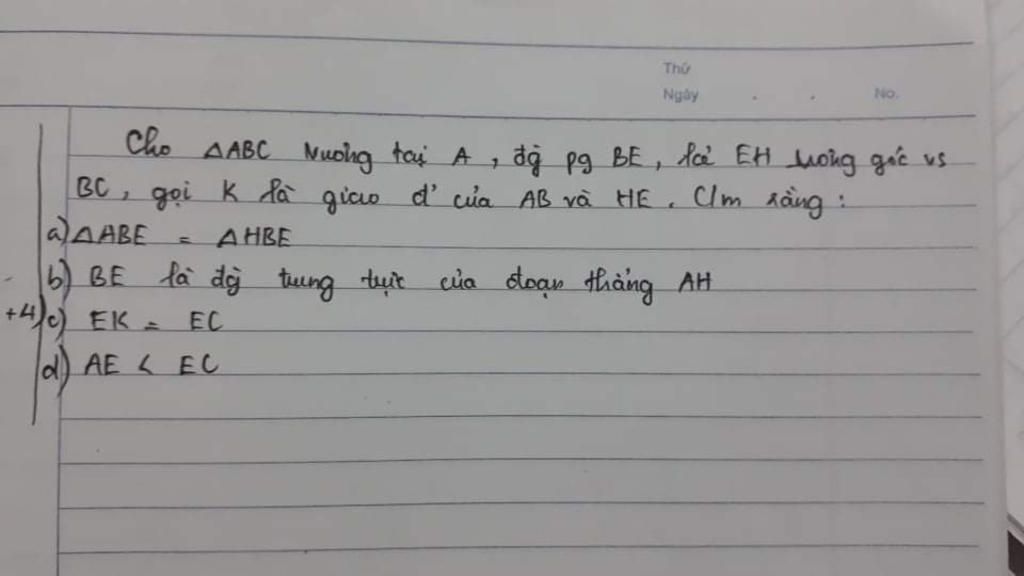 Thứ
Ngày . . No.
Cho ΔABC vuông tại A, đg pg BE, kẻ EH vuông góc vs
BC, gọi K là giao đ' của AB và HE. C/m rằng:
a) ΔABE = ΔHBE
b) BE là đg trung trực của đoạn thẳng AH
+4) c) EK = EC
d) AE < EC